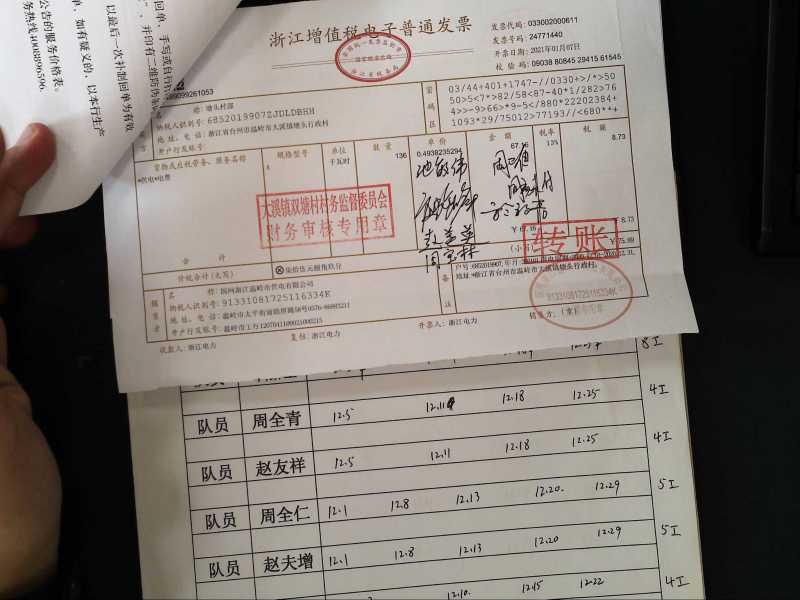 回单,手写或自行打
公告的服务价格表。
单,如有疑义的,以本行生产
以最后一次补制回单为有效
务热线4008896596.
浙江增值税电子普通发票
发票代码: 033002000611
发票号码: 24771440
开票日期: 2021年01月07日
校验码: 09038 80845 29415 61545
499099261053
名称: 塘头村部
纳税人识别号: 6852019907ZJDLDBHH
地址、电话: 浙江省台州市温岭市大溪镇塘头行政村
开户行及账号:
密码区
03/44+401+1747-//0330+>/*>50
50>5<7*>82/58<87-40*1/282>76
4>>-9>66>*9-5</880*22202384+
1093*29/75012>77193//<680**+
货物或应税劳务、服务名称
规格型号
单位
数量
单价
金额
税率
税额
*供电*电费
千瓦时
136
0.4938235294
67.16
13%
8.73
大溪镇双塘村村务监督委员会
财务审核专用章
赵美英
周宝林
合计
¥8.73
价税合计(大写)
柒拾伍元捌角玖分
(小写)
¥75.89
转账
销售方
名称: 国网浙江温岭市供电有限公司
纳税人识别号: 91331081725116334K
地址、电话: 温岭市太平街道
开户行及账号: 温岭市工行1207041109021000215
备注
地址:浙江省台州市温岭市大溪镇塘头行政村。
91331081725116334K
收款人: 浙江电力
复核: 浙江电力
开票人: 浙江电力
销售方:(章)
8工
队员 周全青 12.5 12.11 12.18 12.25 4工
队员 赵友祥 12.5 12.11 12.18 12.25 4工
队员 周全仁 12.1 12.8 12.13 12.20. 12.29 5工
队员 赵夫增 12.1 12.8 12.13 12.20 12.29 5工
12.10. 12.15 12.22 4工